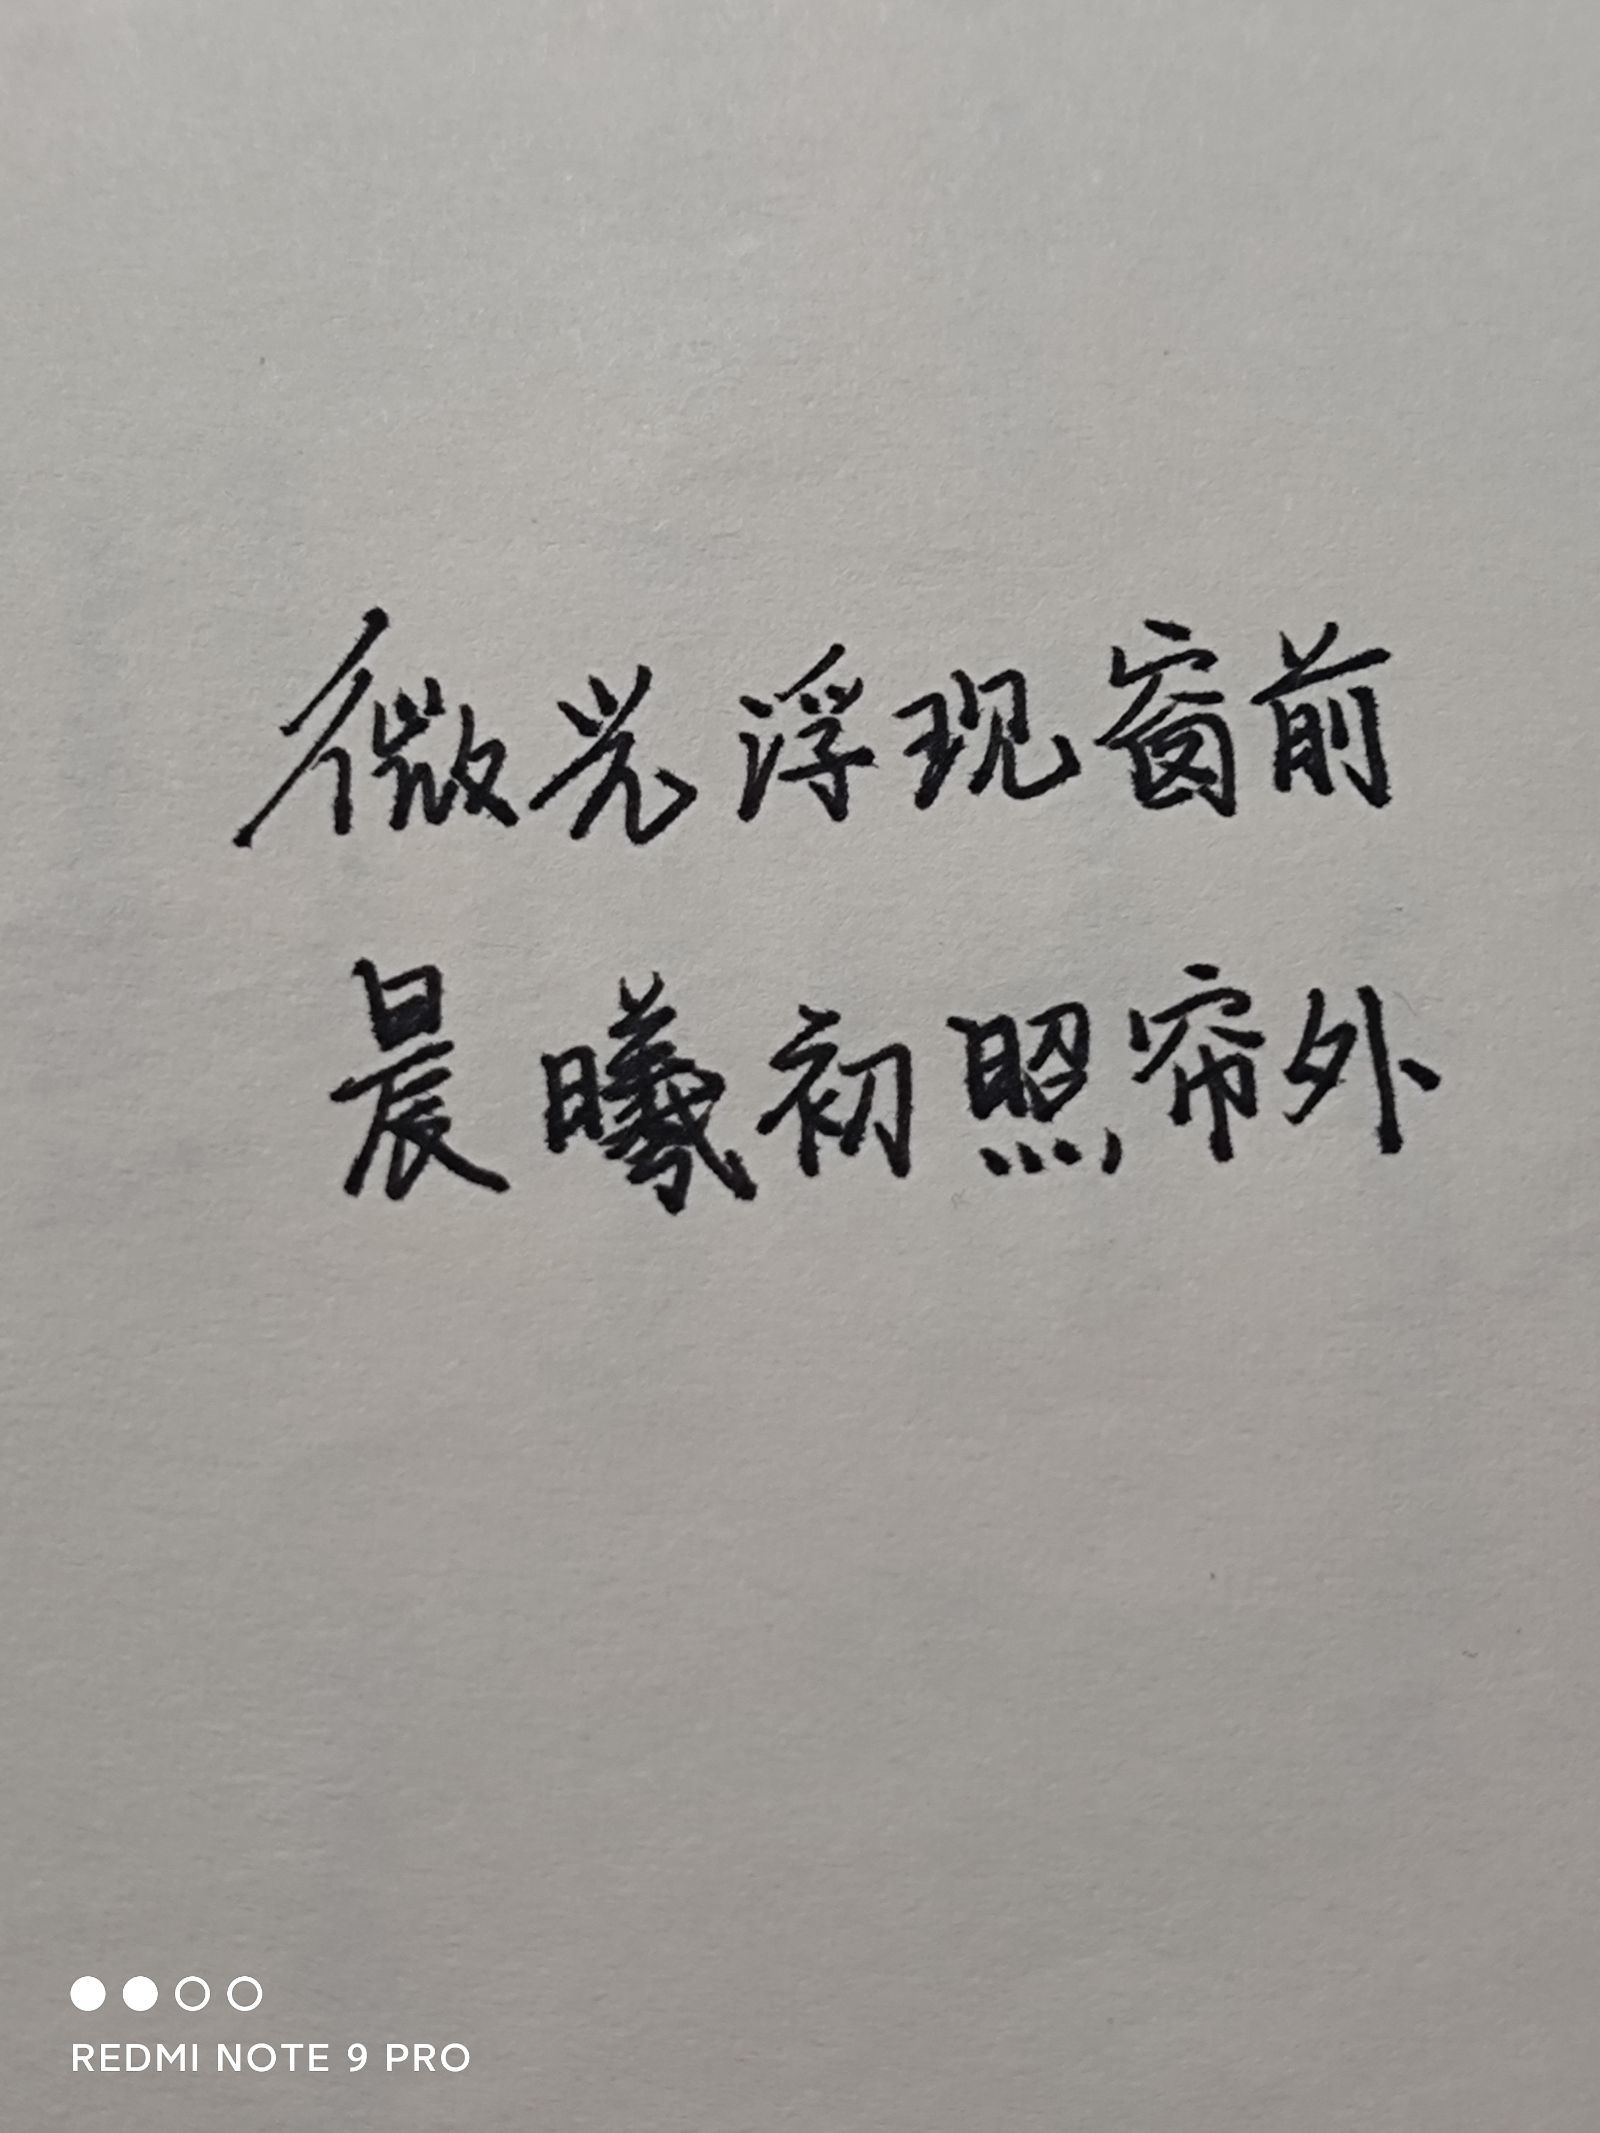 微光浮现窗前
晨曦初照帘外
REDMI NOTE 9 PRO